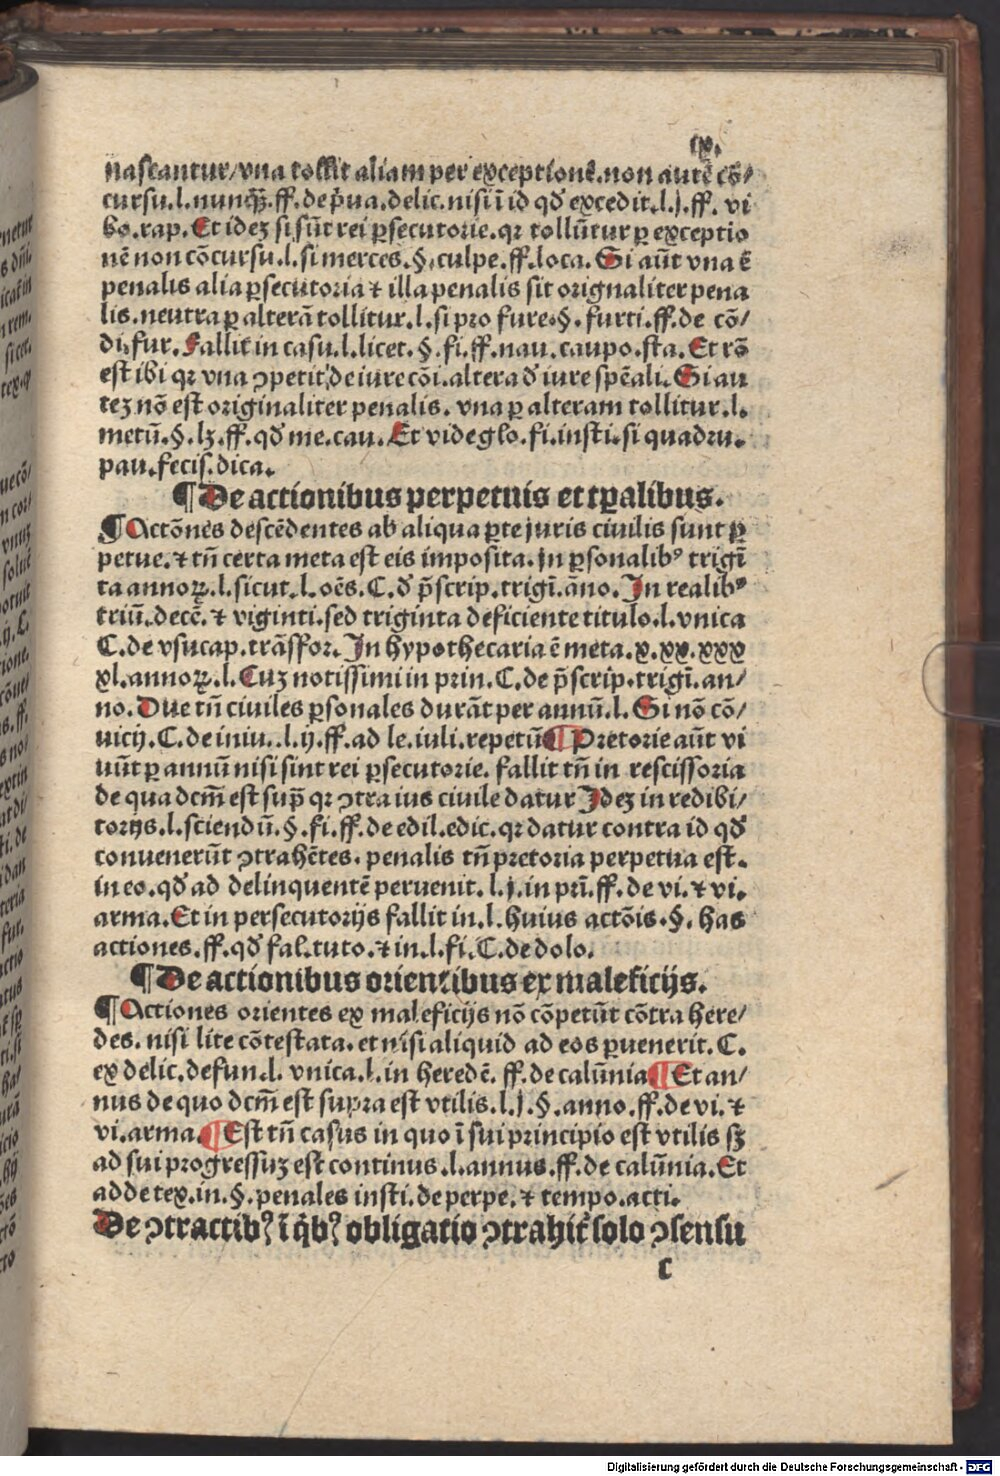 ix.
nascantur/vna tollit aliam per exceptionē.non autē cō/
cursu.l.nunq̄ꝫ.ff.de p̄ua.delic.nisi ī id qd̓ excedit.l.j.ff. vi
bo.rap. Et ideꝫ si sūt rei ꝑsecutorie.qꝛ tollūtur ꝑ exceptio
nē non cōcursu.l.si merces.§.culpe.ff.loca. Si aūt vna ē
penalis alia ꝑsecutoria ⁊ illa penalis sit orignaliter pena
lis.neutra ꝑ alterā tollitur.l.si pro fure.§.furti.ff.de cō/
di.fur.Fallit in casu.l.licet.§.fi.ff.nau.caupo.sta.Et rō
est ibi qꝛ vna ↄpetit de iure cōi.altera d̓ iure spēali.Si au
teꝫ nō est originaliter penalis. vna ꝑ alteram tollitur.l.
metū.§.lꝫ.ff.qd̓ me.cau.Et vide glo.fi.insti.si quadru.
pau.fecis.dica.
¶De actionibus perpetuis et tꝑalibus.
¶Actōnes descēdentes ab aliqua ꝑte juris ciuilis sunt ꝑ
petue.⁊ tn̄ certa meta est eis imposita.in ꝑsonalibꝰ trigī
ta annoꝝ.l.sicut.l.oēs.C.d̓ p̄scrip.trigī.āno.In realibꝰ
triū.decē.⁊ viginti.sed triginta deficiente titulo.l.vnica
C.de vsucap.trāsfor.In hypothecaria ē meta.x.xx.xxx
xl.annoꝝ.l.Cuꝫ notissimi in prin.C.de p̄scrip.trigī.an/
no.Due tn̄ ciuiles ꝑsonales durāt per annū.l.Si nō cō/
uicij.C.de iniu..l.ij.ff.ad le.iuli.repetū¶Pretorie aūt vi
uūt ꝑ annū nisi sint rei ꝑsecutorie. fallit tn̄ in rescissoria
de qua dcm̄ est sup̄ qꝛ ↄtra ius ciuile datur Ideꝫ in redibi/
torijs.l.sciendū.§.fi.ff.de edil.edic.qꝛ datur contra id qd̓
conuenerūt ↄtrahētes. penalis tn̄ pretoria perpetua est.
in eo.qd̓ ad delinquentē peruenit.l.j.in prī.ff.de vi.⁊ vi.
arma.Et in persecutorijs fallit in.l.huius actōis.§.has
actiones.ff.qd̓ fal.tuto.⁊ in.l.fi.C.de dolo.
¶De actionibus orientibus ex maleficijs.
¶Actiones orientes ex maleficijs nō cōpetūt cōtra here/
des. nisi lite cōtestata.et nisi aliquid ad eos ꝑuenerit.C.
ex delic.defun.l. vnica.l.in heredē. ff.de calūnia¶Et an/
nus de quo dcm̄ est supra est vtilis.l.j.§.anno.ff.de vi.⁊
vi.arma.¶Est tn̄ casus in quo ī sui principio est vtilis sꝫ
ad sui progressuꝫ est continus.l.annus.ff.de calūnia.Et
adde tex.in.§.penales insti.de perpe.⁊ tempo.acti.
De ↄtractibꝰ ī qͥbꝰ obligatio ↄtrahit᷑ solo ↄsensu
c
Digitalisierung gefördert durch die Deutsche Forschungsgemeinschaft - DFG